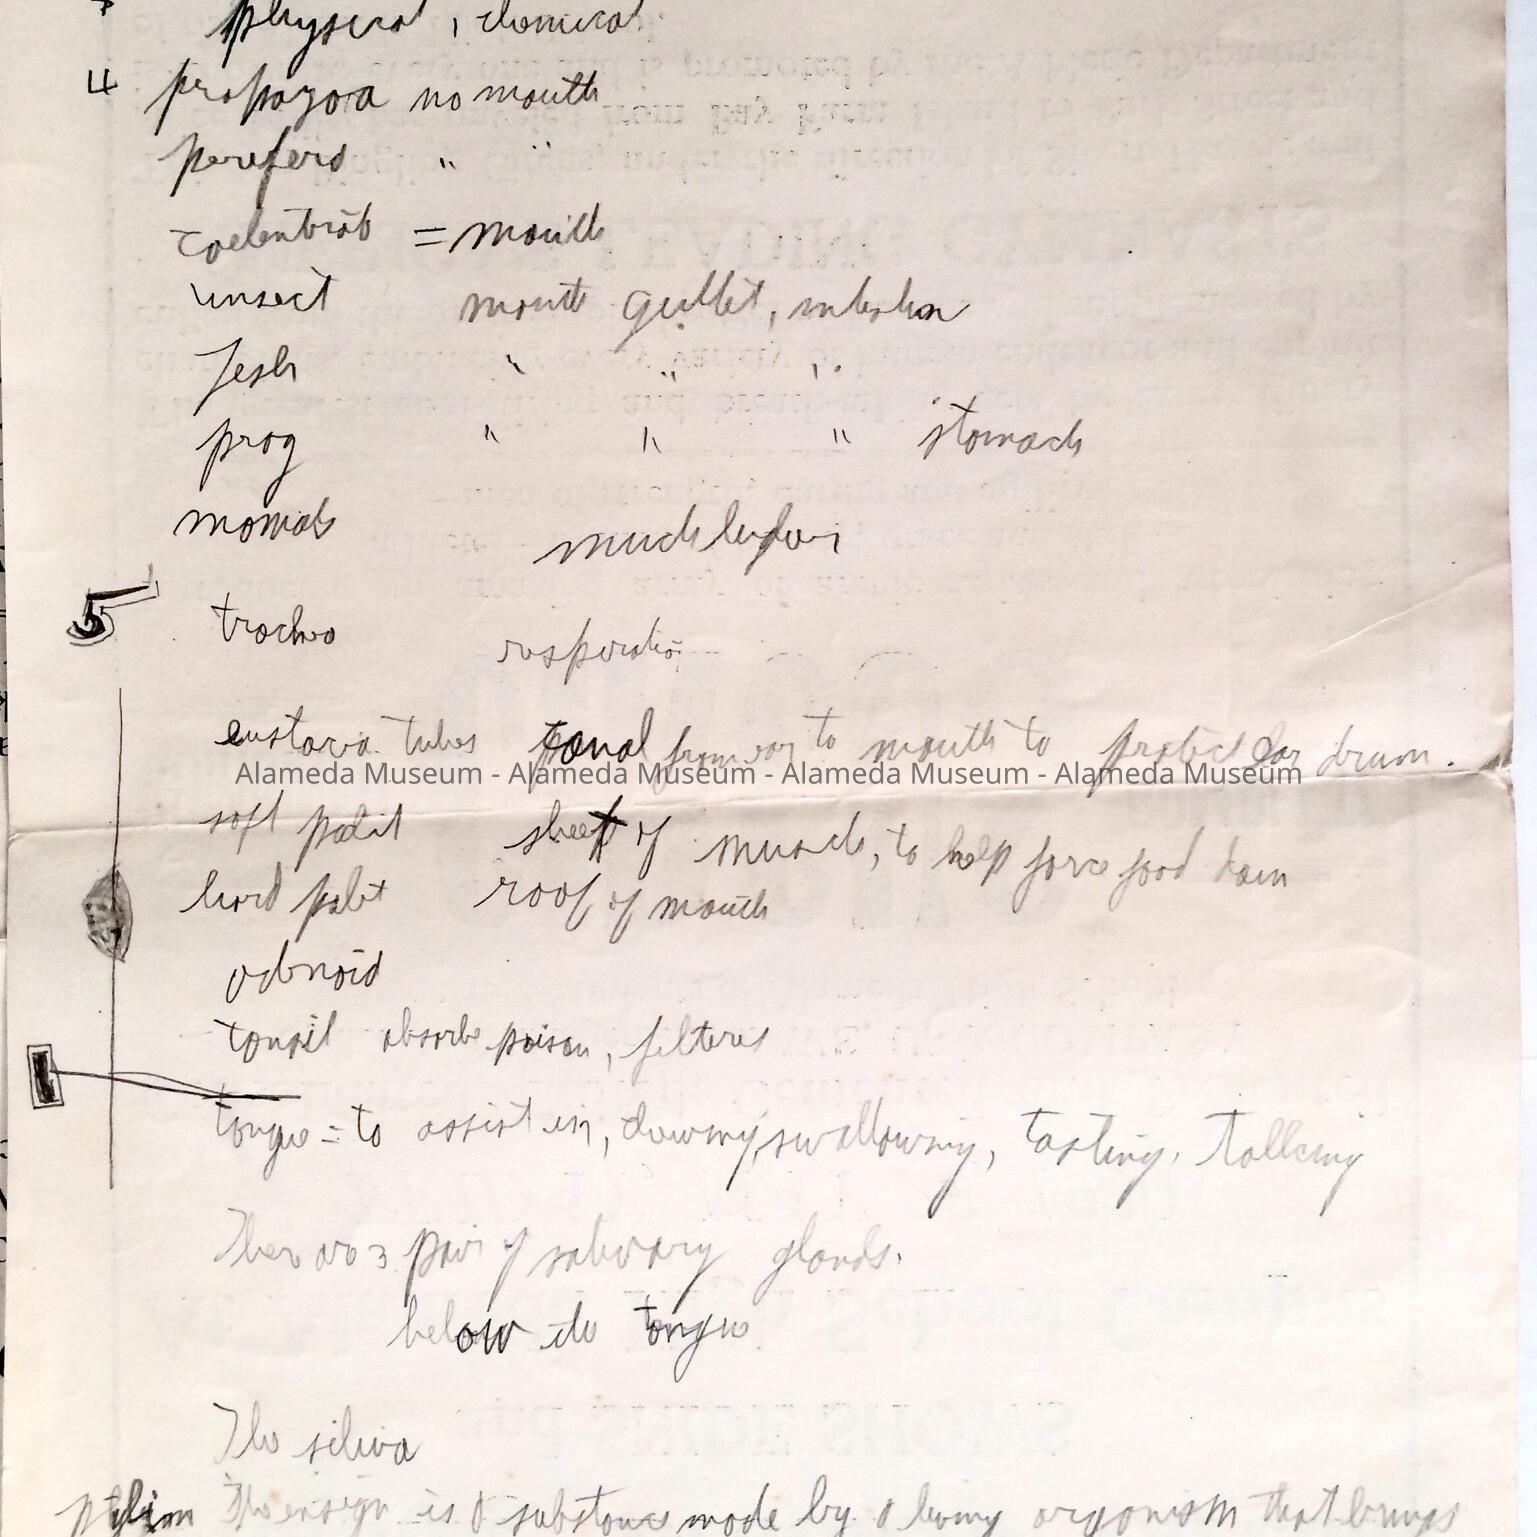 physical, chemical
4 propozoa no mouth
perifero " "
coelentrat = mouth
insect mouth gullet, intestin
fesh " " "
prog " " " stomach
momals
5 trachea respiratio
eustacia tubes canal from ear to mouth to protect ear drum.
Alameda Museum - Alameda Museum - Alameda Museum - Alameda Museum
soft palit sheet of muscle, to help force food down
hard palit roof of mouth
adenoid
tonsil absorbe poison, filteres
tongue = to assist in, chewing, swallowing, tasting, talking
Ther are 3 pair of salivary glands.
below the tongue
The siliva
ptylin The ensyn is a substance made by a living organism that brings